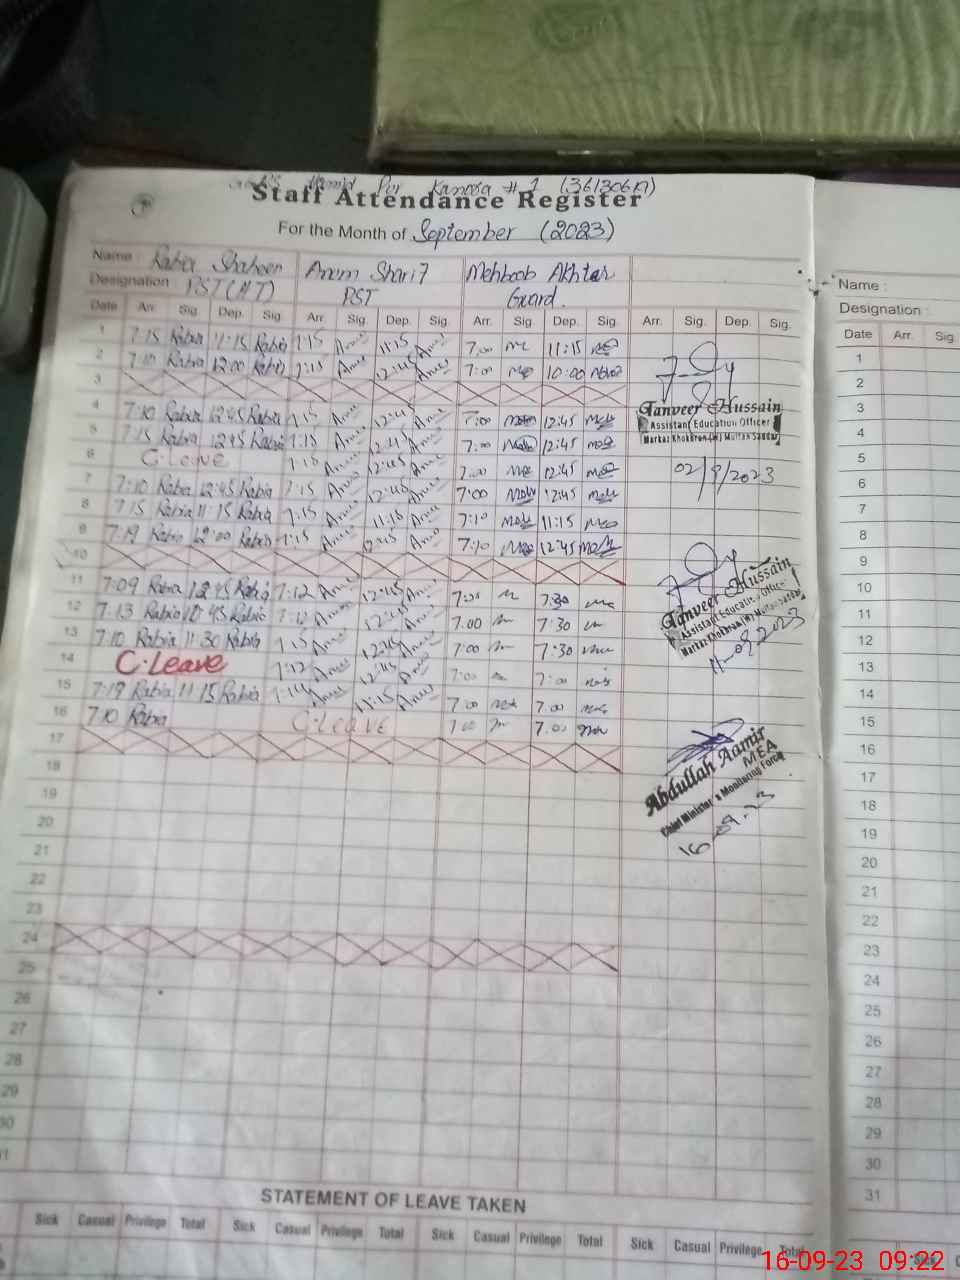 Kanera # 1 (36130619)
Staff Attendance Register
For the Month of September (2023)
Name : Rabia Shaheen Anum Sharif Mehboob Akhtar
Designation PST (HT) PST Guard.
Date Arr. Sig. Dep. Sig. Arr. Sig. Dep. Sig. Arr. Sig. Dep. Sig. Arr. Sig. Dep. Sig.
1 7:15 Rabia 11:15 Rabia 7:15 Anum 11:15 Anum 7.00 11:15
2 7:10 Rabia 12:00 Rabia 7:15 Anum 12:45 Anum 7:00 10:00
3
4 7:10 Rabia 12:45 Rabia 7:15 Anum 12:45 Anum 7:00 12:45
5 7:15 Rabia 12:45 Rabia 7:15 Anum 12:45 Anum 7:00 12:45
6 C.Leave 7:15 Anum 12:45 Anum 7:00 12:45
7 7:10 Rabia 12:45 Rabia 7:15 Anum 12:45 Anum 7:00 12:45
8 7:15 Rabia 11:15 Rabia 7:15 Anum 11:15 Anum 7:10 11:15
9 7:19 Rabia 12:00 Rabia 7:15 Anum 12:45 Anum 7:10 12:45
10
11 7:09 Rabia 12:45 Rabia 7:12 Anum 12:45 Anum 7:30
12 7:13 Rabia 10:45 Rabia 7:12 Anum 12:45 Anum 7.00 7:30
13 7:10 Rabia 11:30 Rabia 7:15 Anum 12:45 Anum 7:00 7:30
14 C.Leave 7:12 Anum 12:45 Anum 7:00 7:00
15 7:19 Rabia 11:15 Rabia 7:14 Anum 11:15 Anum 7.00 7.00
16 7:10 Rabia C.Leave 7.00 7.00
17
18
19
20
21
22
23
24
25
26
27
28
29
30
31
Tanveer Hussain
Assistant Education Officer
Markaz Khokhran (W) Multan Saddar
02/9/2023
Tanveer Hussain
Assistant Education Officer
Markaz Khokhran (W) Multan Saddar
11-09-2023
Abdullah Aamir
MEA
Chief Minister's Monitoring Force
16.09.23
STATEMENT OF LEAVE TAKEN
Sick Casual Privilege Total Sick Casual Privilege Total Sick Casual Privilege Total Sick Casual Privilege Total
Name :
Designation :
Date Arr. Sig
1
2
3
4
5
6
7
8
9
10
11
12
13
14
15
16
17
18
19
20
21
22
23
24
25
26
27
28
29
30
31
Sick
16-09-23 09:22